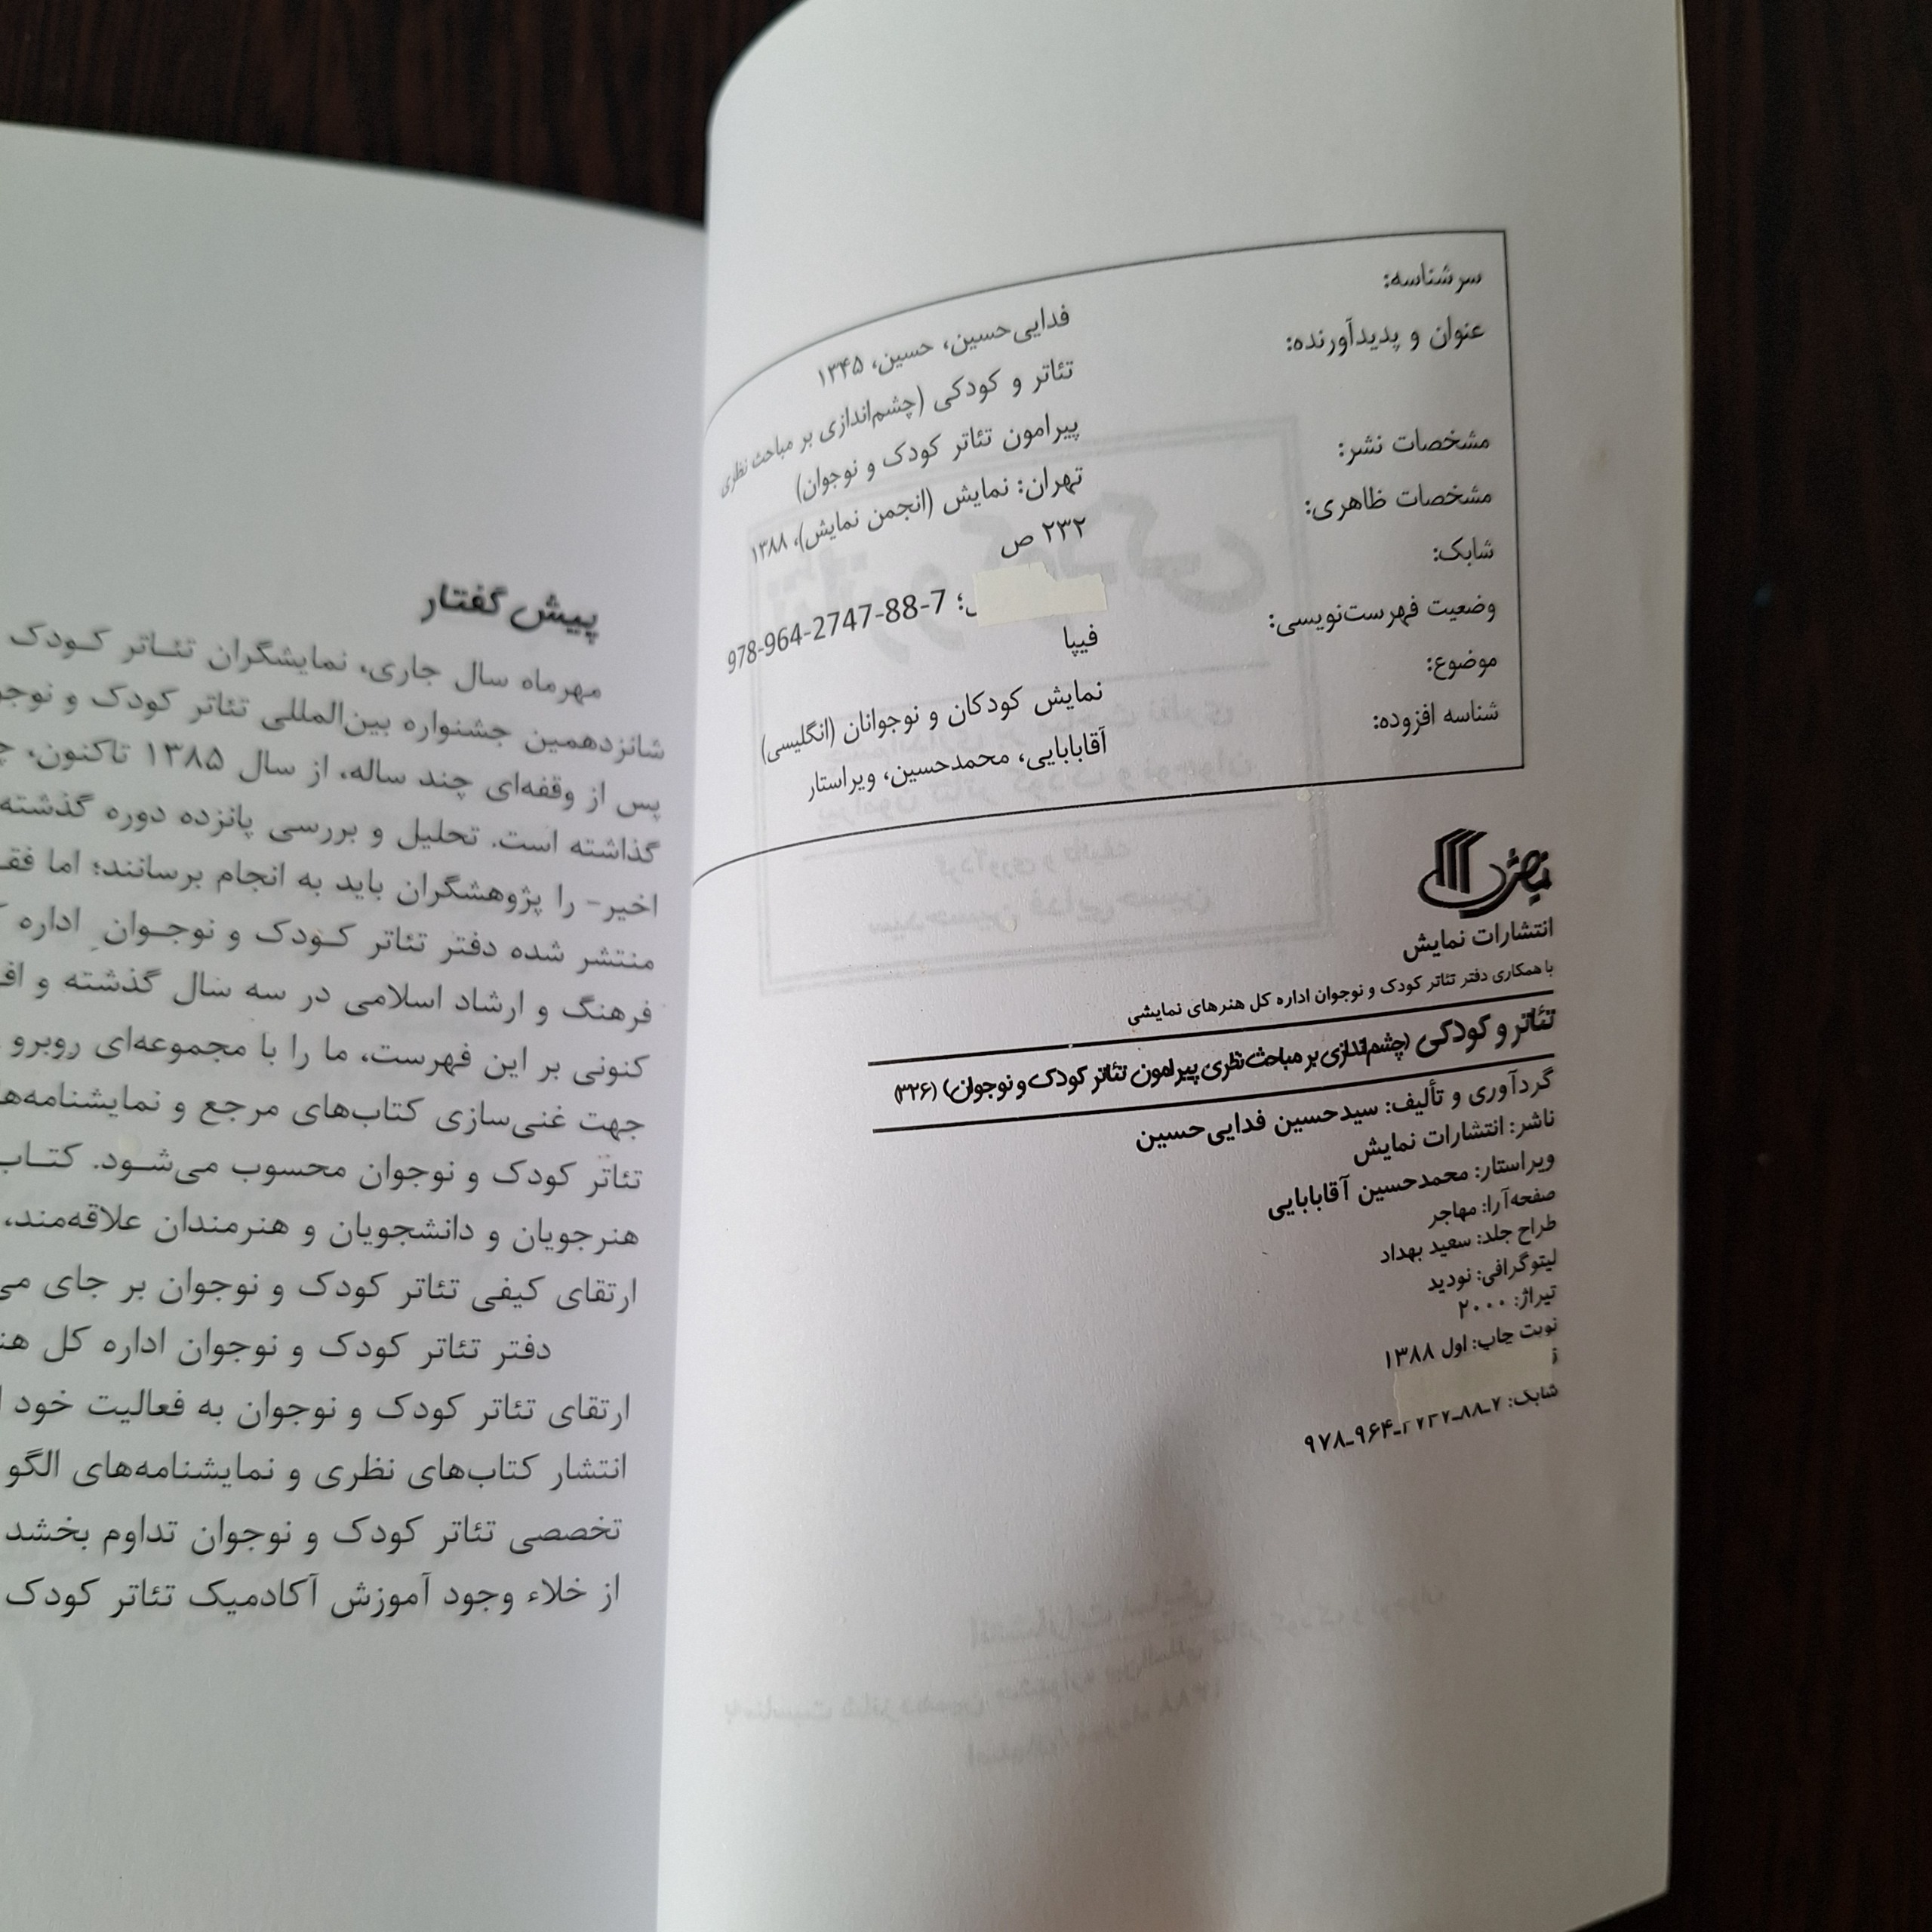 سرشناسه: فدایی‌حسین، حسین، ۱۳۴۵
عنوان و پدیدآورنده: تئاتر و کودکی (چشم‌اندازی بر مباحث نظری
پیرامون تئاتر کودک و نوجوان)
مشخصات نشر: تهران: نمایش (انجمن نمایش)، ۱۳۸۸
مشخصات ظاهری: ۲۳۲ ص
شابک: 978-964-2747-88-7
وضعیت فهرست‌نویسی: فیپا
موضوع: نمایش کودکان و نوجوانان (انگلیسی)
شناسه افزوده: آقابابایی، محمدحسین، ویراستار
نمایش
انتشارات نمایش
با همکاری دفتر تئاتر کودک و نوجوان اداره کل هنرهای نمایشی
تئاتر و کودکی (چشم‌اندازی بر مباحث نظری پیرامون تئاتر کودک و نوجوان) (۳۲۶)
گردآوری و تألیف: سیدحسین فدایی‌حسین
ناشر: انتشارات نمایش
ویراستار: محمدحسین آقابابایی
صفحه‌آرا: مهاجر
طراح جلد: سعید بهداد
لیتوگرافی: نودید
تیراژ: ۲۰۰۰
نوبت چاپ: اول ۱۳۸۸
شابک: ۷ـ۸۸ـ۲۷۴۷ـ۹۶۴ـ۹۷۸
پیش گفتار
مهرماه سال جاری، نمایشگران تئـاتر کـودک
شانزدهمین جشنواره بین‌المللی تئاتر کودک و
پس از وقفه‌ای چند ساله، از سال ۱۳۸۵ تاکنون،
گذاشته است. تحلیل و بررسی پانزده دوره گذشته
اخیر- را پژوهشگران باید به انجام برسانند؛ اما
منتشر شده دفتر تئاتر کـودک و نوجـوان اداره
فرهنگ و ارشاد اسلامی در سه سال گذشته و
کنونی بر این فهرست، ما را با مجموعه‌ای روبرو
جهت غنی‌سازی کتاب‌های مرجع و
تئاتر کودک و نوجوان محسوب می‌شـود.
هنرجویان و دانشجویان و هنرمندان علاقه‌مند،
ارتقای کیفی تئاتر کودک و نوجوان بر جای
دفتر تئاتر کودک و نوجوان اداره کل
ارتقای تئاتر کودک و نوجوان به فعالیت خود
انتشار کتاب‌های نظری و نمایشنامه‌های الگو
تخصصی تئاتر کودک و نوجوان تداوم بخشد
از خلاء وجود آموزش آکادمیک تئاتر کودک